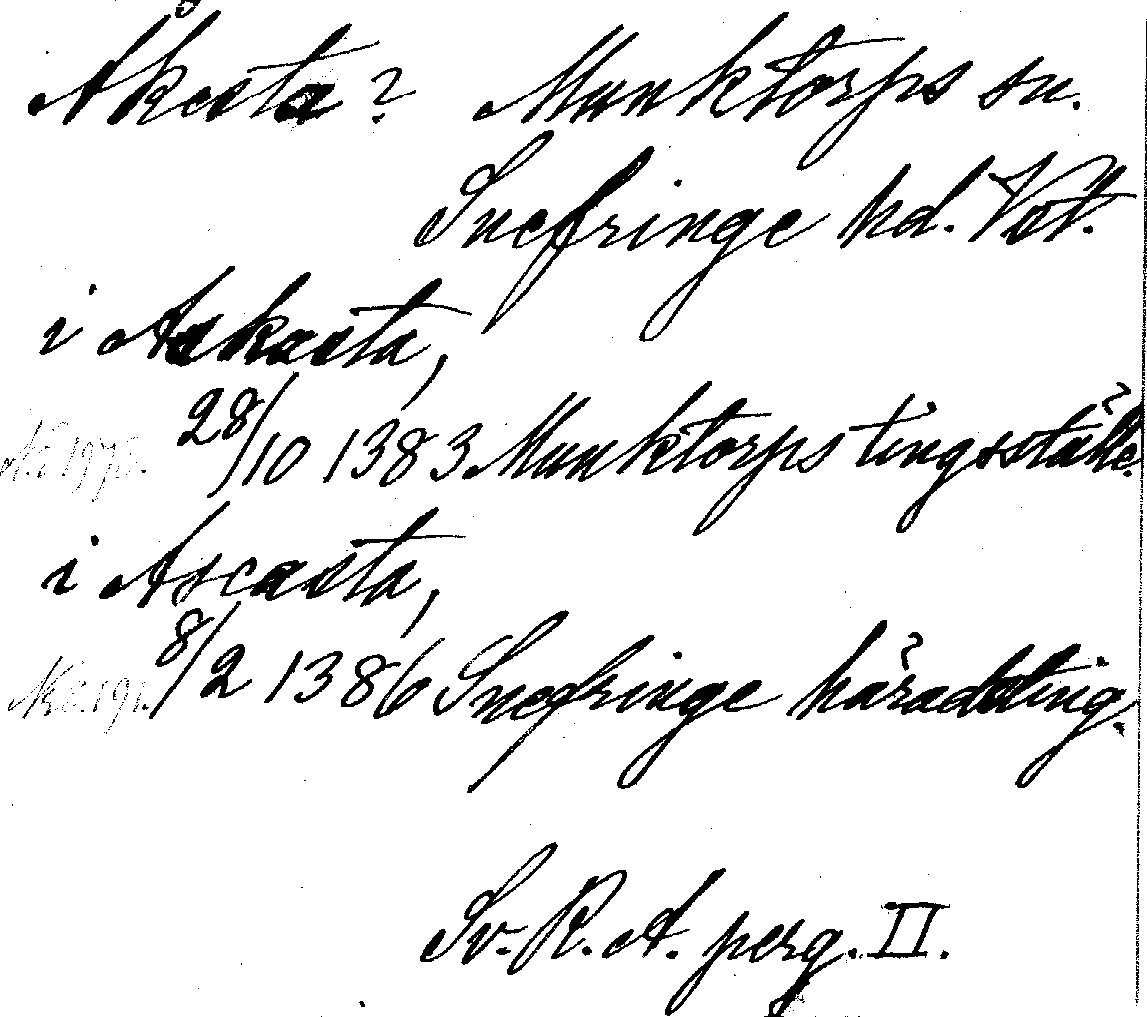 Åkesta? Munktorps sn.
Snefringe hd. Vstl.
i Askasta,
28/10 1383 Munktorps tingsställe.
i Ascasta,
8/2 1386 Snefringe häradsting.
Sv. R. A. perg. II.